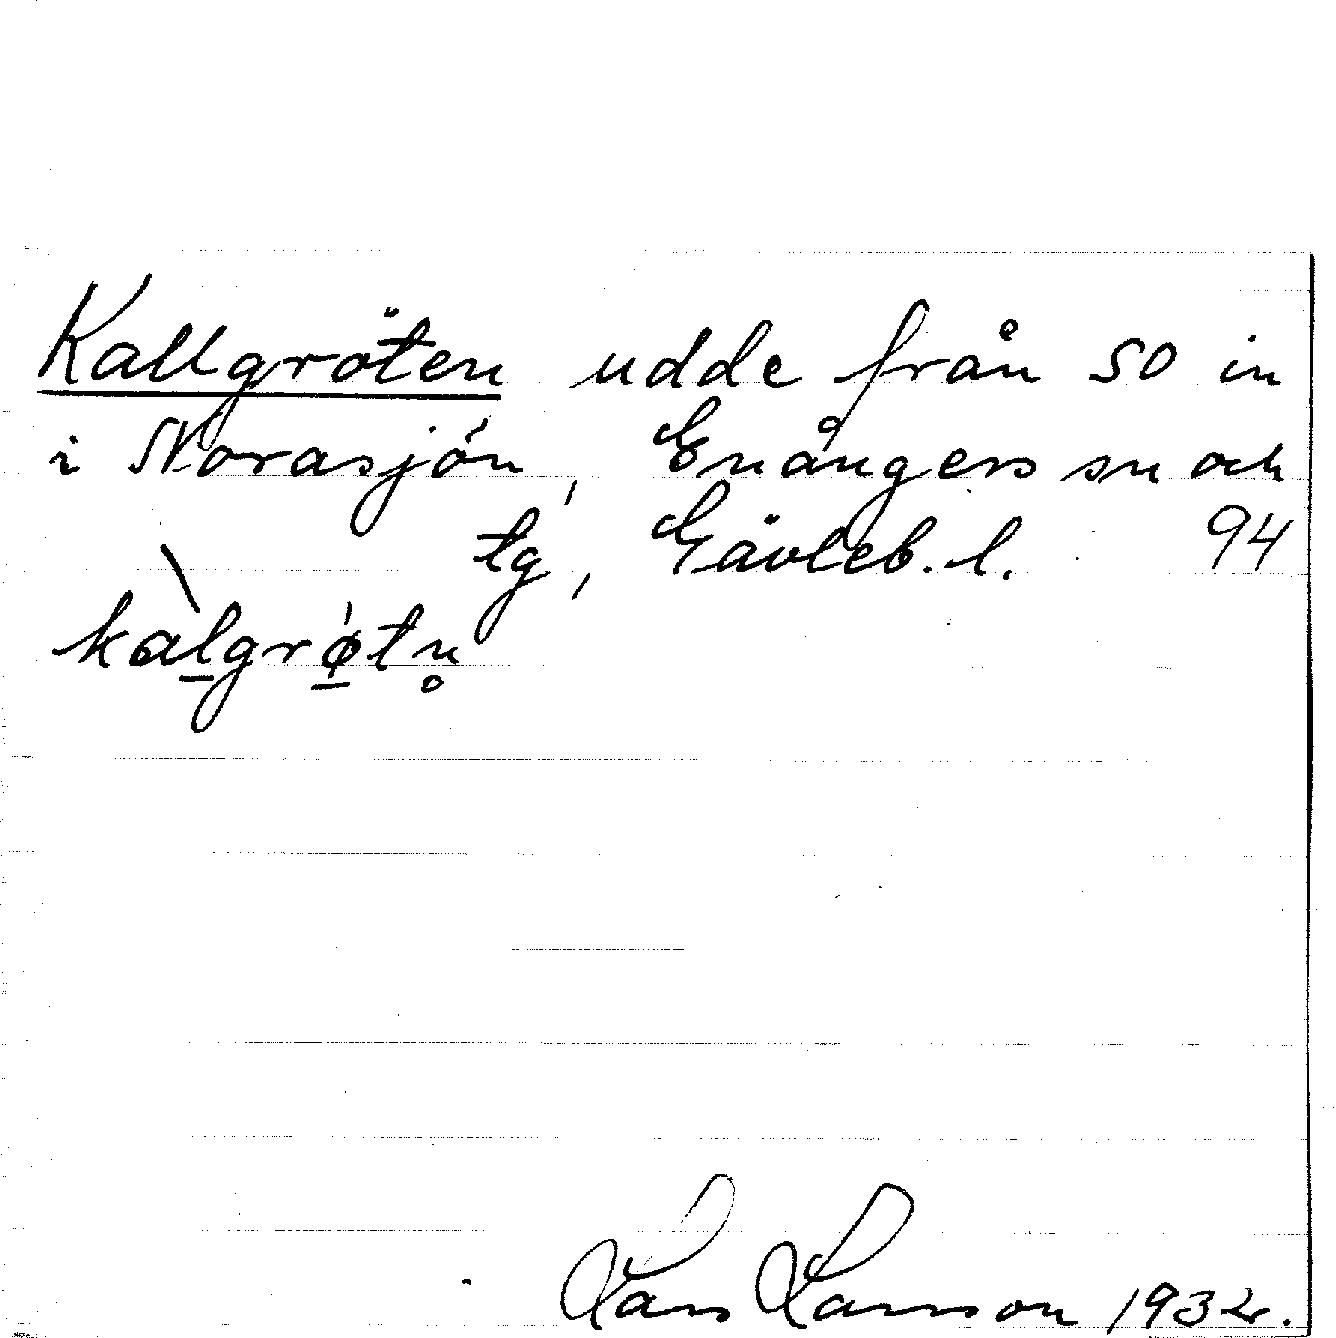 Kallgröten udde från SO in
i Norasjön, Enångers sn och
tg, Gävleb. l. 94
kàl̠grǿ̠tn̥
Lars Larsson 1932.